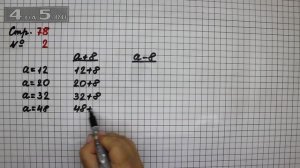 4 5
Стр. 78
№ 2
a+8 a-8
a=12 12+8
a=20 20+8
a=32 32+8
a=48 48+